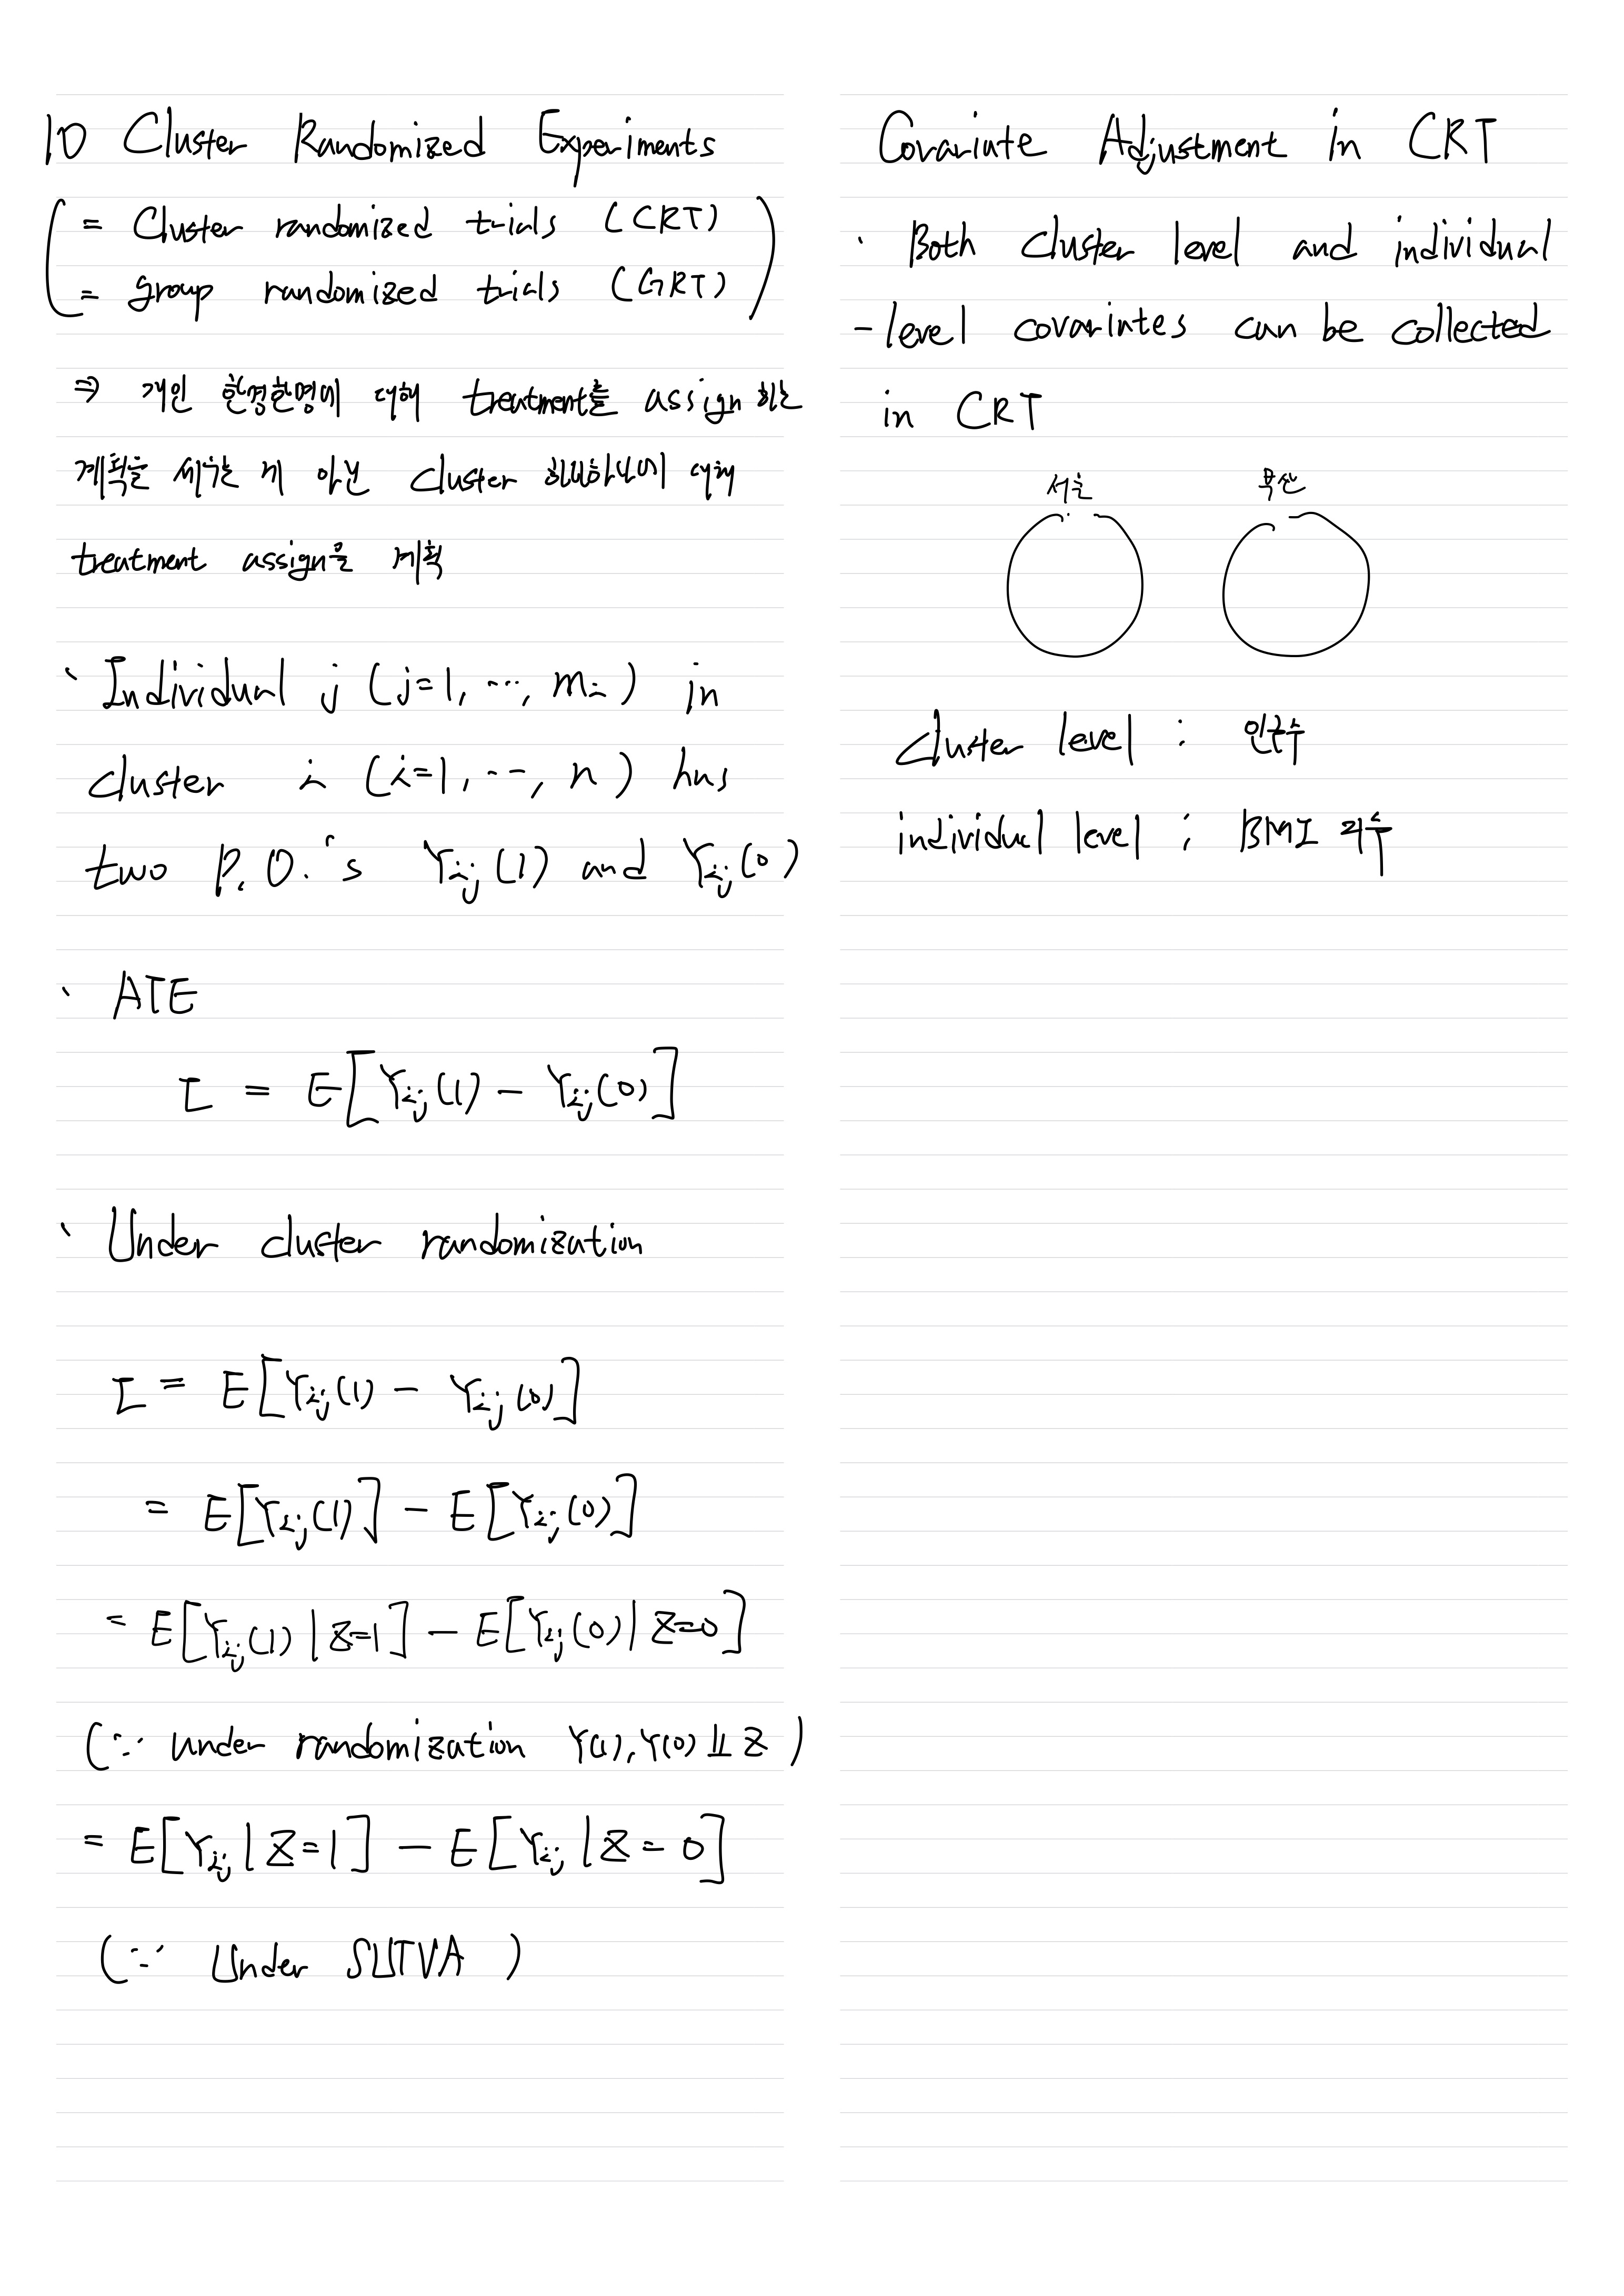 10 Cluster Randomized Experiments
( = Cluster randomized trials (CRT)
= group randomized trials (GRT) )
⇒ 개인 한명한명에 대해 treatment를 assign 하는
계획을 세우는 게 아닌 cluster 하나하나에 대해
treatment assign을 계획
· Individual j (j=1, ⋯, mᵢ) in
cluster i (i=1, ⋯, n) has
two P.O.'s Yᵢⱼ(1) and Yᵢⱼ(0)
· ATE
τ = E[Yᵢⱼ(1) − Yᵢⱼ(0)]
· Under cluster randomization
τ = E[Yᵢⱼ(1) − Yᵢⱼ(0)]
= E[Yᵢⱼ(1)] − E[Yᵢⱼ(0)]
= E[Yᵢⱼ(1) | Z=1] − E[Yᵢⱼ(0) | Z=0]
(∵ under randomization Y(1), Y(0) ⫫ Z)
= E[Yᵢⱼ | Z=1] − E[Yᵢⱼ | Z=0]
(∵ Under SUTVA)
Covariate Adjustment in CRT
· Both cluster level and individual
-level covariates can be collected
in CRT
서울 부산
cluster level : 인구수
individual level : BMI 지수